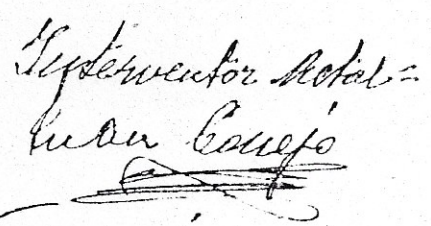 Interventor Actal=
Juan Conejo